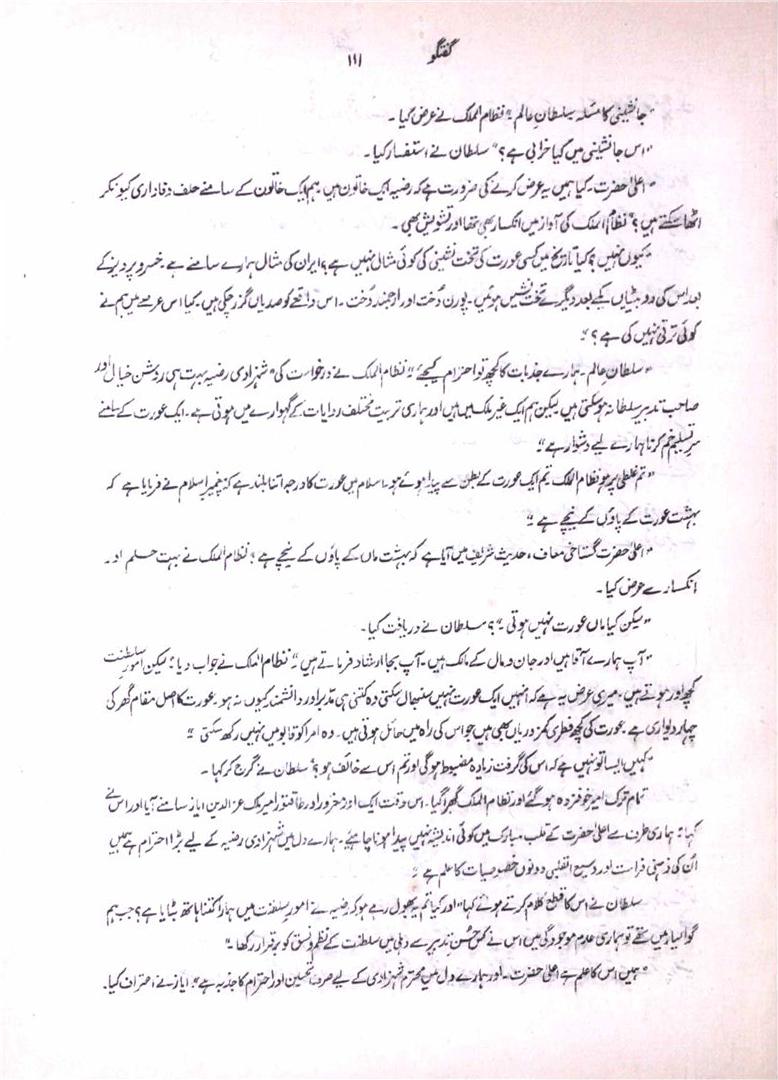 گفتگو ۱۱۱
”جانشینی کا مسئلہ سلطانِ عالم“ نظام الملک نے عرض کیا۔
”اس جانشینی میں کیا خرابی ہے؟“ سلطان نے استفسار کیا۔
”اعلیٰ حضرت۔ کیا ہمیں یہ عرض کرنے کی ضرورت ہے کہ رضیہ ایک خاتون ہیں ہم ایک خاتون کے سامنے حلف وفاداری کیونکر
اٹھا سکتے ہیں؟“ نظام الملک کی آواز میں انکسار بھی تھا اور تشویش بھی۔
”کیوں نہیں؟ کیا تاریخ میں کسی عورت کی تخت نشینی کی کوئی مثال نہیں ہے؟ ایران کی مثال ہمارے سامنے ہے خسرو پرویز کے
بعد اس کی دو بیٹیاں یکے بعد دیگرے تخت نشیں ہوئیں۔ پورن دُخت اور ارجمند دُخت۔ اس واقعے کو صدیاں گزر چکی ہیں کیا اس عرصے میں ہم نے
کوئی ترقی نہیں کی ہے؟“
”سلطانِ عالم۔ ہمارے جذبات کا کچھ تو احترام کیجئے“ نظام الملک نے درخواست کی ”شہزادی رضیہ بہت ہی روشن خیال اور
صاحب تدبیر سلطانہ ہو سکتی ہیں لیکن ہم ایک غیر ملک میں ہیں اور ہماری تربیت مختلف روایات کے گہوارے میں ہوتی ہے۔ ایک عورت کے سامنے
سرِ تسلیم خم کرنا ہمارے لیے دشوار ہے“
”تم غلطی پر ہو نظام الملک تم ایک عورت کے بطن سے پیدا ہوئے ہو۔ اسلام میں عورت کا درجہ اتنا بلند ہے کہ پیغمبرِ اسلام نے فرمایا ہے کہ
بہشت عورت کے پاؤں کے نیچے ہے“
”اعلیٰ حضرت گستاخی معاف، حدیث شریف میں آیا ہے کہ بہشت ماں کے پاؤں کے نیچے ہے؟ نظام الملک نے بہت حلم اور
انکسار سے عرض کیا۔
”لیکن کیا ماں عورت نہیں ہوتی“؟ سلطان نے دریافت کیا۔
”آپ ہمارے آقا ہیں اور جان و مال کے مالک ہیں۔ آپ بجا ارشاد فرماتے ہیں“ نظام الملک نے جواب دیا ”لیکن امورِ سلطنت
کچھ اور ہوتے ہیں، میری عرض یہ ہے کہ انہیں ایک عورت نہیں سنبھال سکتی وہ کتنی ہی مدبر اور دانشمند کیوں نہ ہو۔ عورت کا اصل مقام گھر کی
چہار دیواری ہے۔ عورت کی کچھ فطری کمزوریاں بھی ہیں جو اس کی راہ میں حائل ہوتی ہیں۔ وہ امرا کو قابو میں نہیں رکھ سکتی“
”کہیں ایسا تو نہیں ہے کہ اس کی گرفت زیادہ مضبوط ہوگی اور تم اس سے خائف ہو؟“ سلطان نے گرج کر کہا۔
تمام ترک امیر خوفزدہ ہو گئے اور نظام الملک گھبرا گیا۔ اس وقت ایک اور خوبرو اور طاقتور امیر ملک عزالدین ایاز سامنے آیا اور اس نے
کہا ”ہماری طرف سے اعلیٰ حضرت کے قلب مبارک میں کوئی اندیشہ نہیں پیدا ہونا چاہئے۔ ہمارے دل میں شہزادی رضیہ کے لیے بڑا احترام ہے ہمیں
اُن کی ذہنی فراست اور وسیع القلبی دونوں خصوصیات کا علم ہے“
سلطان نے اس کا قطع کلام کرتے ہوئے کہا ”اور کیا تم یہ بھول رہے ہو کہ رضیہ نے امورِ سلطنت میں ہمارا کتنا ہاتھ بٹایا ہے؟ جب ہم
گوالیار میں تھے تو ہماری عدم موجودگی میں اس نے کس حُسنِ تدبیر سے دہلی میں سلطنت کے نظم و نسق کو برقرار رکھا۔“
”ہمیں اس کا علم ہے اعلیٰ حضرت۔ اور ہمارے دل میں محترم شہزادی کے لیے صرف تحسین اور احترام کا جذبہ ہے“ ایاز نے اعتراف کیا۔